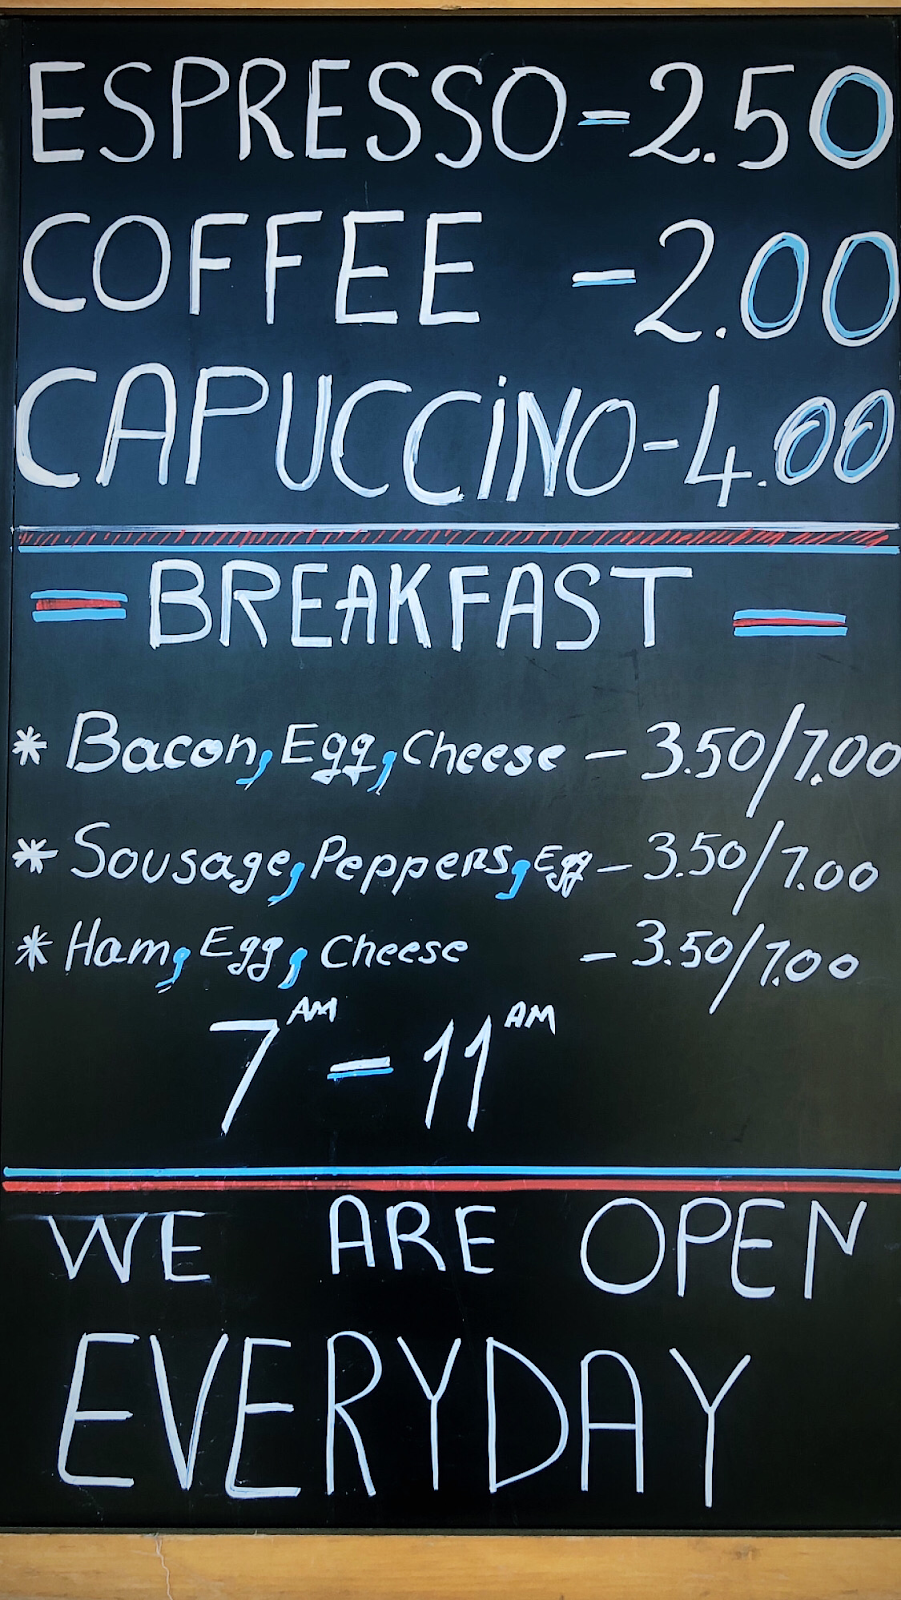 ESPRESSO-2.50
COFFEE -2.00
CAPUCCiNO-4.00
= BREAKFAST =
* Bacon, Egg, Cheese - 3.50/7.00
* Sousage, Peppers, Egg - 3.50/7.00
* Ham, Egg, Cheese - 3.50/7.00
7 AM - 11 AM
WE ARE OPEN
EVERYDAY